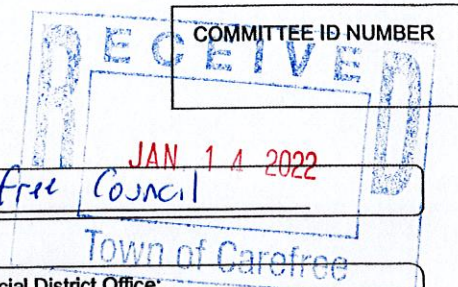 RECEIVED
COMMITTEE ID NUMBER
JAN 14 2022
free Council
Town of Carefree
cial District Office: